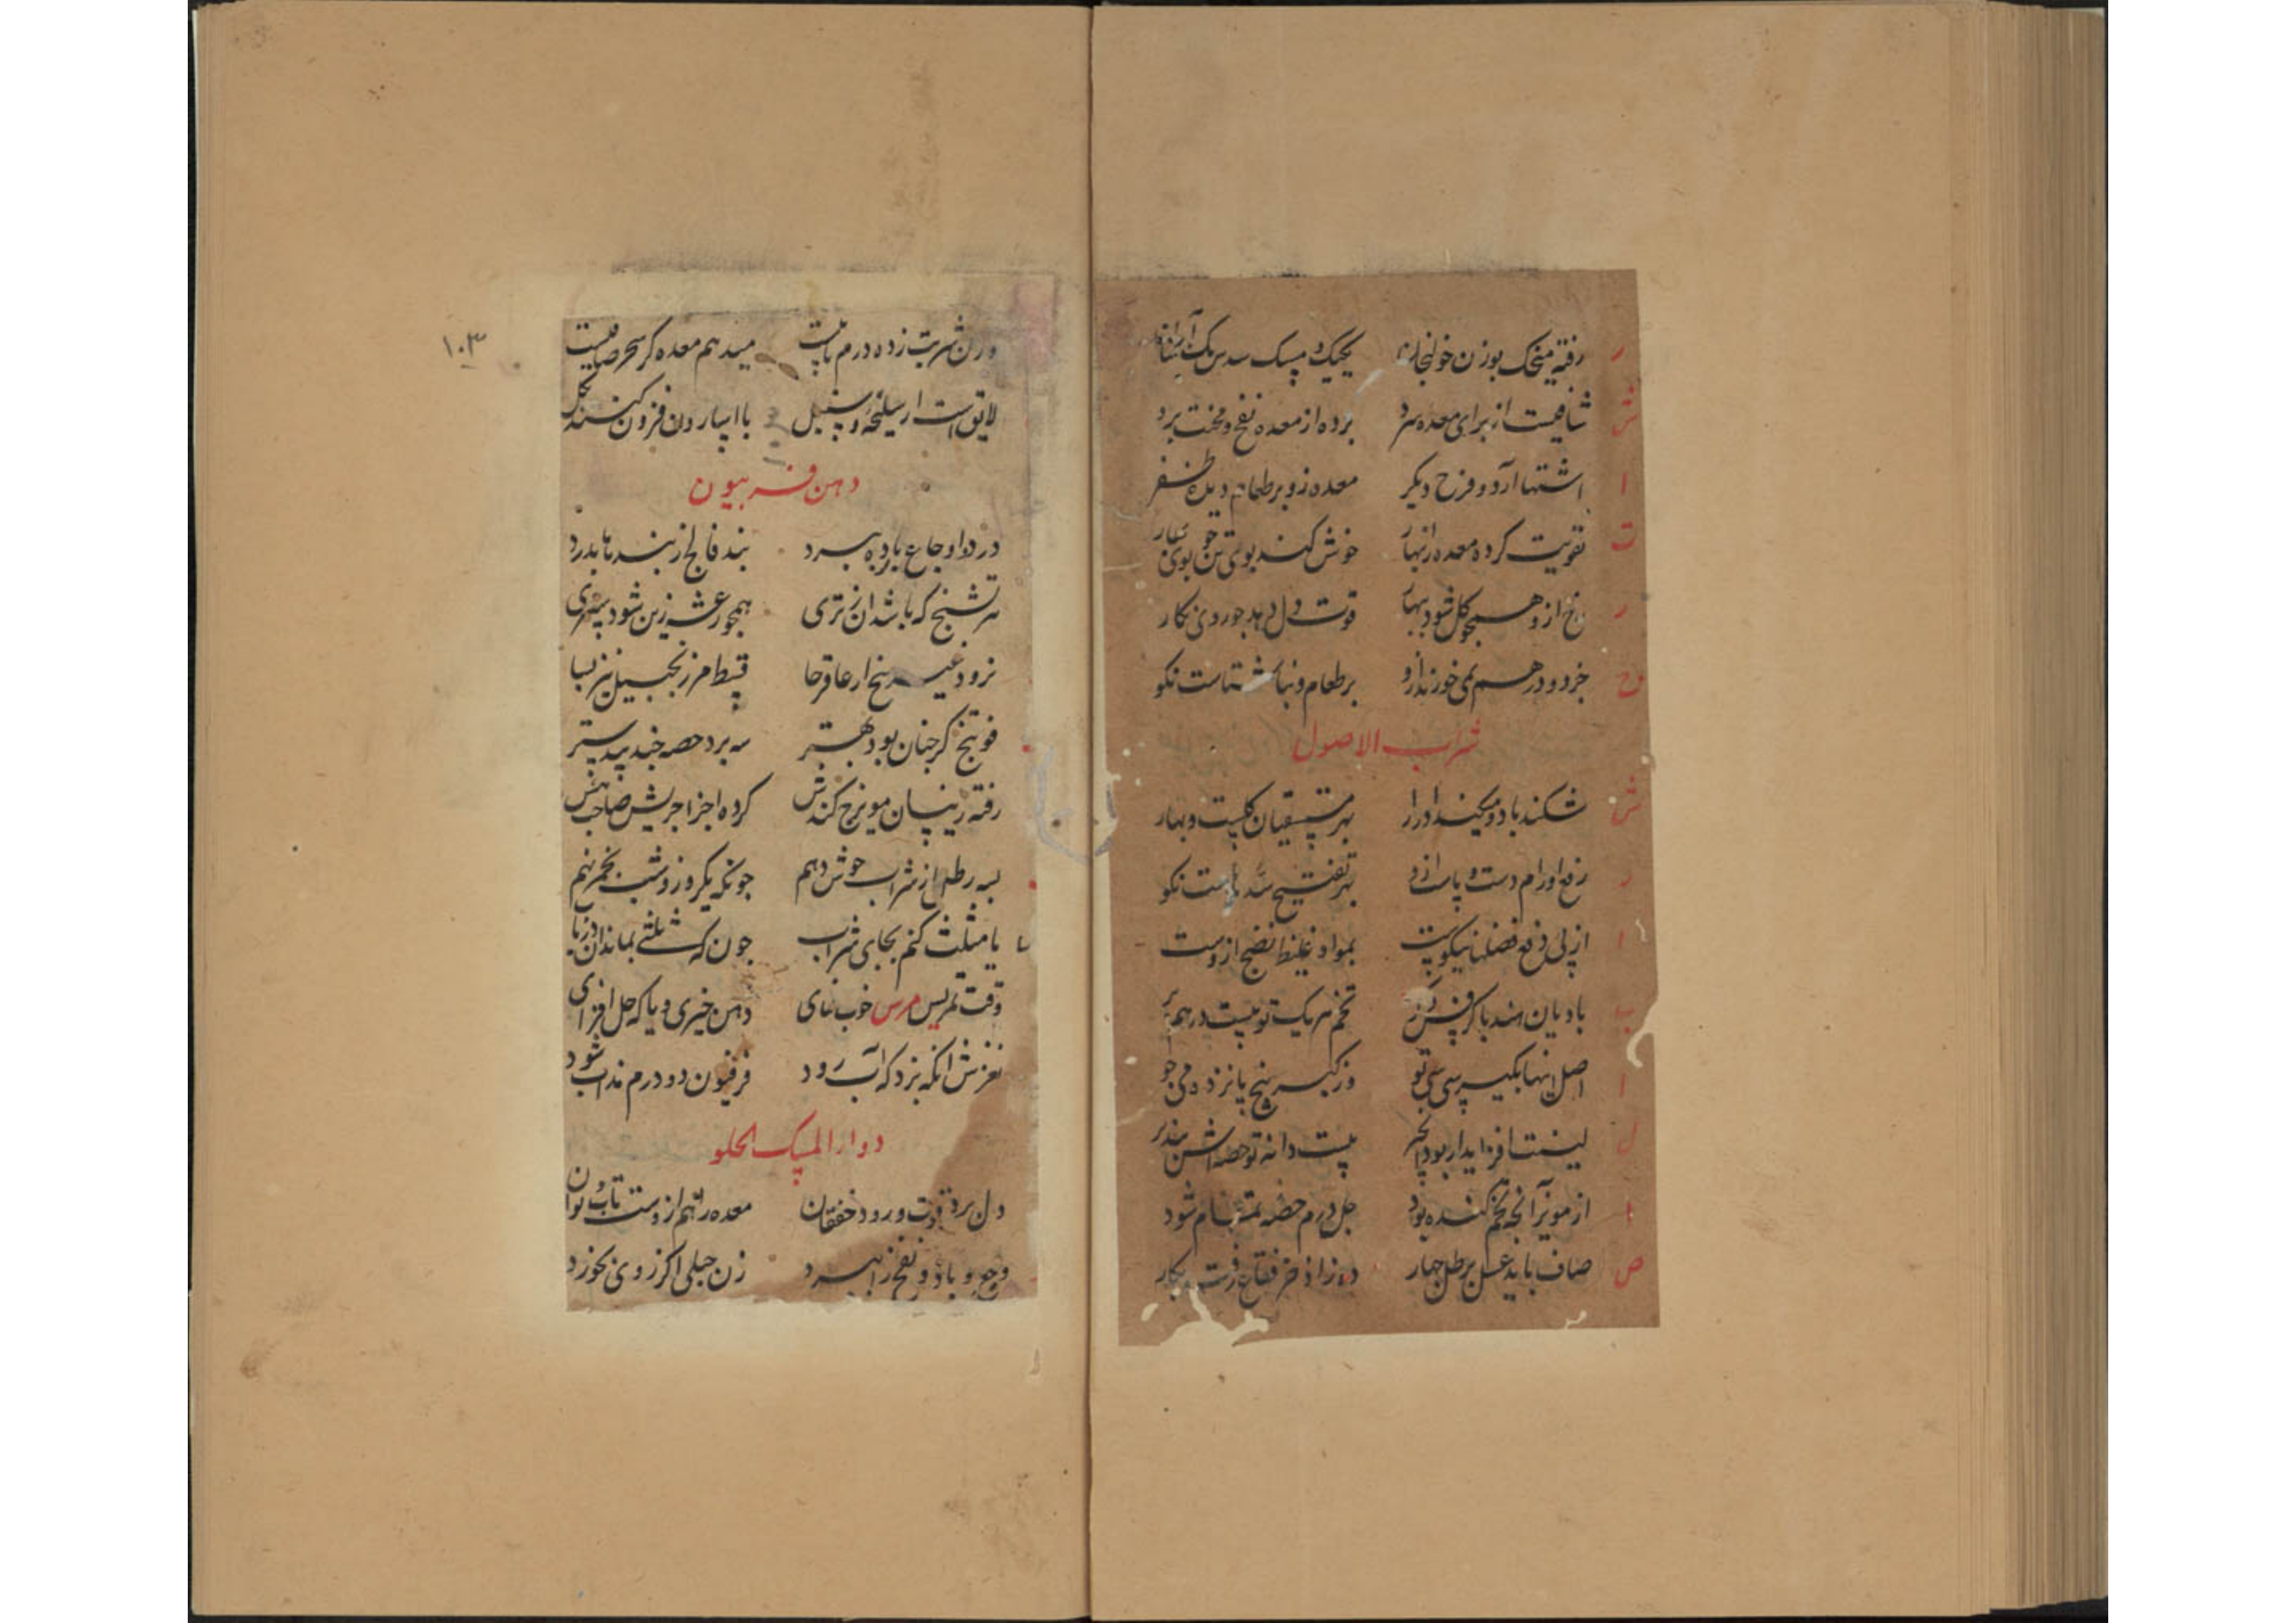 ر رفته میخک بوزن خولنجان یکیک و مسک سدس یک
ش شافیست از برای معده سرد برده از معده نفخ و محنت برد
ا اشتها آرد و فرح دیکر معده زو بر طعام دیده ظفر
ت تقویت کرده معده را بنهار خوش کند بوی تن جو بوی بهار
ر رخ ازو همجو کل شود ببهار قوت دل دهد جو روی نکار
وح خرد و درهم نمی خورند ازو بر طعام و بناشتاست نکو
شراب الاصول
ش شکند باد و میکند ادرار بهر مستسقیان کلست و بهار
ر رفع اورام دست و پاست ازو بهر تفتیح سده است نکو
ا از پی دفع فضلها نیکوست بمواد غلیظ نضج ازوست
ب بادیان هند با کرفس نکر تخم هر یک تو بیست درهم بر
ا اصل اینها بکیر سی سی تو وز کبر بیخ پانزده می جو
ل لینت افزا یدار بود انجیر بیست دانه تو حصه اش
ا از مویز آنجه تخم کنده بود جل درم حصه تمام شود
ص صاف باید عسل برطل جهار ده ز اذخر فقاع رفت بکار
۱۰۳
وزن شربت ز ده درم تا بیست میدهم معده کر سحر صافیست
لایق است ار سلیخه و سنبل با اسارون فزون کنند بکل
دهن فربیون
درد و اوجاع بارده ببرد بند فالج ز بندها بدرد
هر تشنج که باشد از تری همجو رعشه زین شود سپری
نرود غیر بیخ ار عاقرقرحا قسط مر زنجبیل نیز بسا
فوتنج کر جنان بود بهتر سه برد حصه جند بیدستر
رفته زینسان مویزج کندش کرده اجزا جریش صاحب هش
بسه رطل از شراب خوش دهم جونکه یکروز و شب بخم نهم
یا مثلث کنم بجای شراب جون که ثلثی بماند آن دریاب
وقت تمریس مرس خوب نمای دهن خیری و یا که حل افزای
نغزش انکه بزد که آب رود فرفیون دو درم مذاب شود
دواء المسک الحلو
دل برد قوت و رود خفقان معده را هم ازوست تاب و توان
وجع و باد و نفخ را ببرد زن حبلی اکر زوی نخورد